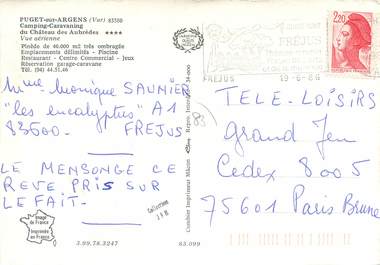 PUGET-sur-ARGENS (Var) 83550
Camping-Caravaning
du Château des Aubrèdes ★★★★
Vue aérienne
Pinède de 40.000 m2 très ombragée
Emplacements délimités - Piscine
Restaurant - Centre Commercial - Jeux
Réservation garage-caravane
Tél. (94) 44.51.46
Mme Monique SAUNIER
"les eucalyptus" A1
83600 FREJUS
LE MENSONGE CE
REVE PRIS SUR
LE FAIT.
Image de France
Imprimée en France
3.99.78.3247
83.099
Combier Imprimeur Mâcon
83
FREJUS
FREJUS
19-6-86
2,20
TELE-LOISIRS
Grand Jeu
Cedex 8005
75601 Paris Brune